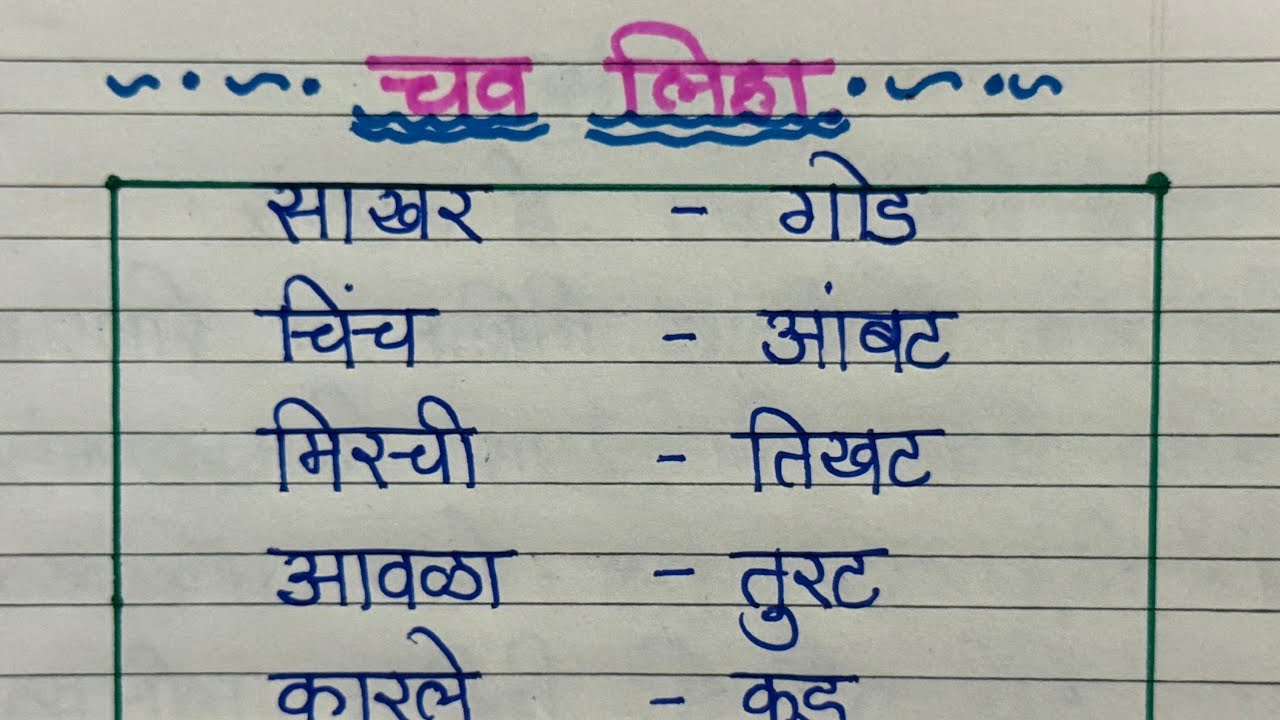 चव लिहा
साखर - गोड
चिंच - आंबट
मिरची - तिखट
आवळा - तुरट
कारले -